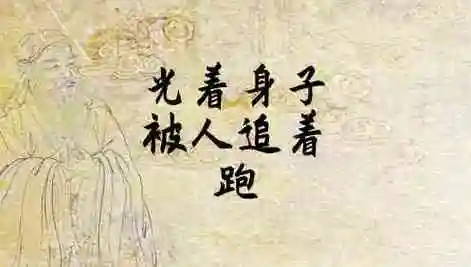 光着身子
被人追着
跑